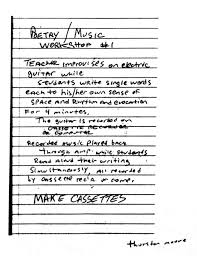 POETRY / MUSIC
WORKSHOP #1
TEACHER improvises on electric
guitar while
students write single words
each to his/her own sense of
space and rhythm and evocation
For 4 minutes.
The guitar is recorded on
CASSETTE RECORDER
or computer
Recorded music played back
through amp while students
Read aloud their writing
Simultaneously, all recorded
by cassette rec'r or comp.
MAKE CASSETTES
thurston moore